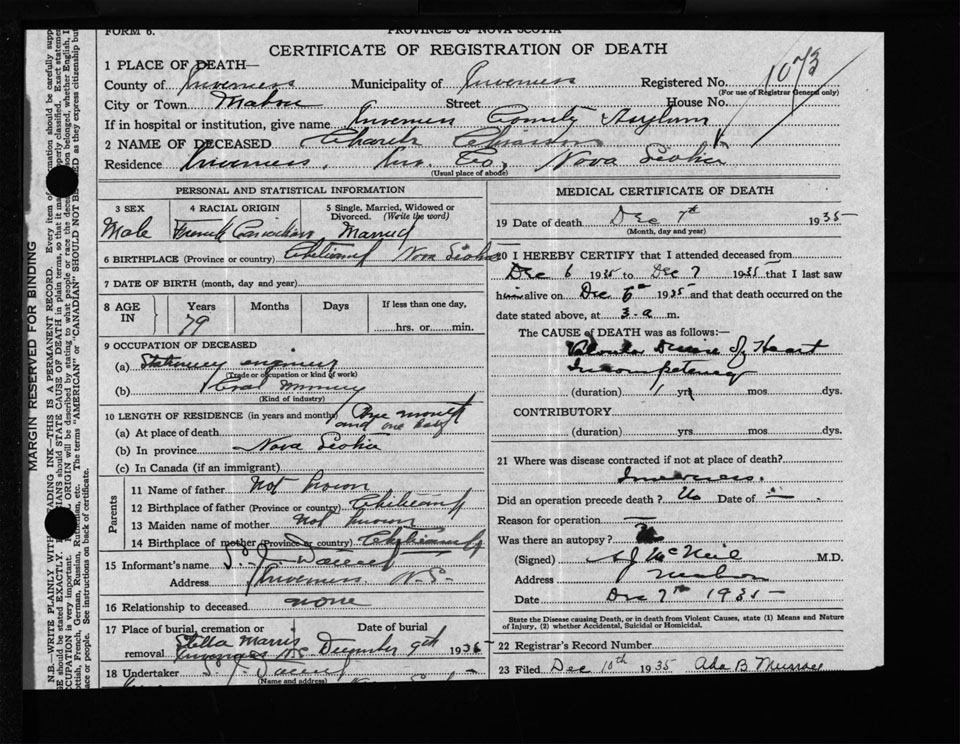 FORM 6. PROVINCE OF NOVA SCOTIA
CERTIFICATE OF REGISTRATION OF DEATH
1073
1 PLACE OF DEATH—
County of Inverness Municipality of Inverness Registered No.
(For use of Registrar General only)
City or Town Mabou Street House No.
If in hospital or institution, give name Inverness County Asylum
2 NAME OF DECEASED Charles
Residence Inverness, Inv. Co., Nova Scotia
(Usual place of abode)
PERSONAL AND STATISTICAL INFORMATION
3 SEX 4 RACIAL ORIGIN 5 Single, Married, Widowed or Divorced. (Write the word)
Male French Canadian Married
6 BIRTHPLACE (Province or country) Nova Scotia
7 DATE OF BIRTH (month, day and year)
8 AGE IN Years Months Days If less than one day,
79 hrs. or min.
9 OCCUPATION OF DECEASED
(a) Stationary engineer
(Trade or occupation or kind of work)
(b) Coal Mining
(Kind of industry)
10 LENGTH OF RESIDENCE (in years and months)
(a) At place of death One month and one day
(b) In province Nova Scotia
(c) In Canada (if an immigrant)
Parents
11 Name of father Not known
12 Birthplace of father (Province or country)
13 Maiden name of mother Not known
14 Birthplace of mother (Province or country)
15 Informant's name
Address Inverness N.S.
16 Relationship to deceased none
17 Place of burial, cremation or removal Date of burial
Stella Marris Inverness N.S. December 9th 1935
18 Undertaker
(Name and address)
MEDICAL CERTIFICATE OF DEATH
19 Date of death Dec 7th 1935
(Month, day and year)
20 I HEREBY CERTIFY that I attended deceased from
Dec 6 1935 to Dec 7 1935 that I last saw
him alive on Dec 6th 1935 and that death occurred on the
date stated above, at 3-a m.
The CAUSE of DEATH was as follows:—
Heart
Incompetency
(duration) 1 yrs. mos. dys.
CONTRIBUTORY
(duration) yrs. mos. dys.
21 Where was disease contracted if not at place of death?
Inverness.
Did an operation precede death? No Date of —
Reason for operation —
Was there an autopsy?
(Signed) A J McNeil M.D.
Address Mabou
Date Dec 7th 1935
State the Disease causing Death, or in death from Violent Causes, state (1) Means and Nature
of Injury, (2) whether Accidental, Suicidal or Homicidal.
22 Registrar's Record Number
23 Filed Dec 10th 1935 Ada B
MARGIN RESERVED FOR BINDING
N.B.—WRITE PLAINLY WITH UNFADING INK—THIS IS A PERMANENT RECORD. Every item of
See instructions on back of certificate.